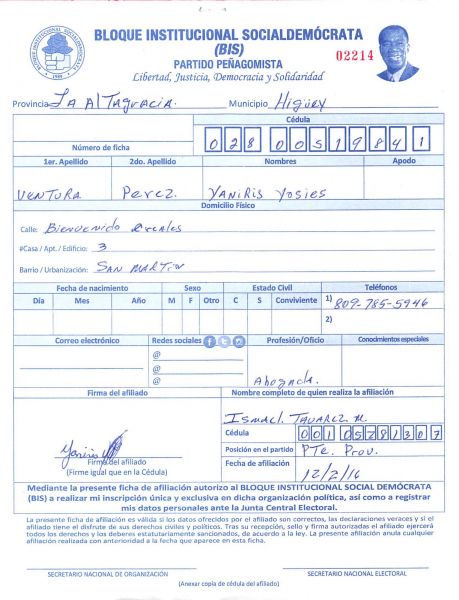 BLOQUE INSTITUCIONAL SOCIALDEMÓCRATA
(BIS)
02214
PARTIDO PEÑAGOMISTA
Libertad, Justicia, Democracia y Solidaridad
Provincia LA AlTagracia. Municipio Higüey
Cédula
Número de ficha 028 0051984 1
1er. Apellido 2do. Apellido Nombres Apodo
VENTURA Perez. YANIRIS Yosies
Domicilio Físico
Calle: Bienvenido
#Casa / Apt. / Edificio: 3
Barrio / Urbanización: SAN MARTIN
Fecha de nacimiento Sexo Estado Civil Teléfonos
Día Mes Año M F Otro C S Conviviente 1) 809-785-5946
2)
Correo electrónico Redes sociales Profesión/Oficio Conocimientos especiales
@
@
@
Abogada.
Firma del afiliado Nombre completo de quien realiza la afiliación
Ismael Tavarez M.
Cédula
001 0528130 7
Yaniris
Firma del afiliado
(Firme igual que en la Cédula)
Posición en el partido Pte. Prov.
Fecha de afiliación 12/2/16
Mediante la presente ficha de afiliación autorizo al BLOQUE INSTITUCIONAL SOCIAL DEMÓCRATA
(BIS) a realizar mi inscripción única y exclusiva en dicha organización política, así como a registrar
mis datos personales ante la Junta Central Electoral.
La presente ficha de afiliación es válida si los datos ofrecidos por el afiliado son correctos, las declaraciones veraces y si el
afiliado tiene el disfrute de sus derechos civiles y políticos. Tras su recepción, sello y firma autorizadas el afiliado ejercerá
todos los derechos y los deberes estatutariamente sancionados, de acuerdo a la ley. La presente afiliación anula cualquier
afiliación realizada con anterioridad a la fecha que aparece en esta ficha.
SECRETARIO NACIONAL DE ORGANIZACIÓN SECRETARIO NACIONAL ELECTORAL
(Anexar copia de cédula del afiliado)